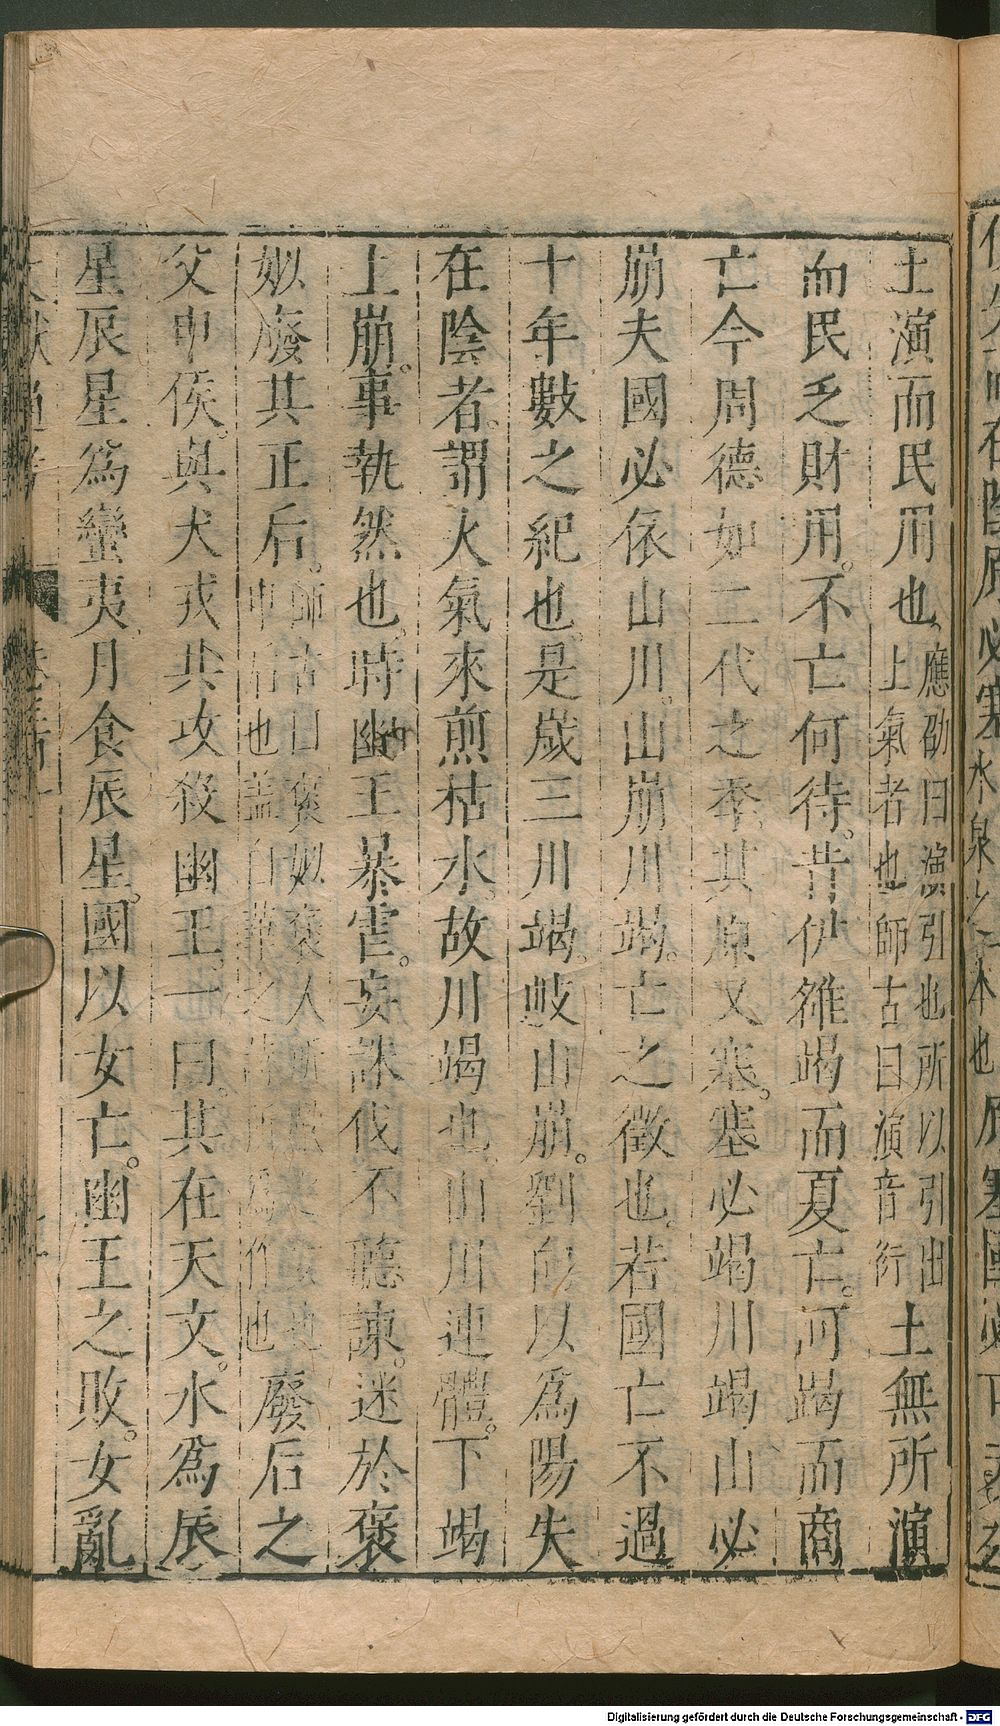 在陰原必塞水泉之本也原塞國必亡
土演而民用也、應劭曰演引也所以引出上氣者也師古曰演音衍土無所演
而民乏財用。不亡何待。昔伊雒竭而夏亡。河竭而商
亡今周德如二代之季。其原又塞。塞必竭川竭山必
崩夫國必依山川。山崩川竭。亡之徵也。若國亡不過
十年數之紀也。是歲三川竭。岐山崩。劉向以爲陽失
在陰者。謂火氣來煎枯水。故川竭也。山川連體。下竭
上崩。事執然也。時幽王暴虐。妄誅伐不聽諫。迷於褒
姒廢其正后。師古曰褒姒褒人所獻之女也申后也蓋白華之詩所爲作也廢后之
父申侯。與犬戎共攻殺幽王。一曰。其在天文。水爲辰
星辰星爲蠻夷。月食辰星。國以女亡。幽王之敗。女亂
Digitalisierung gefördert durch die Deutsche Forschungsgemeinschaft - DFG